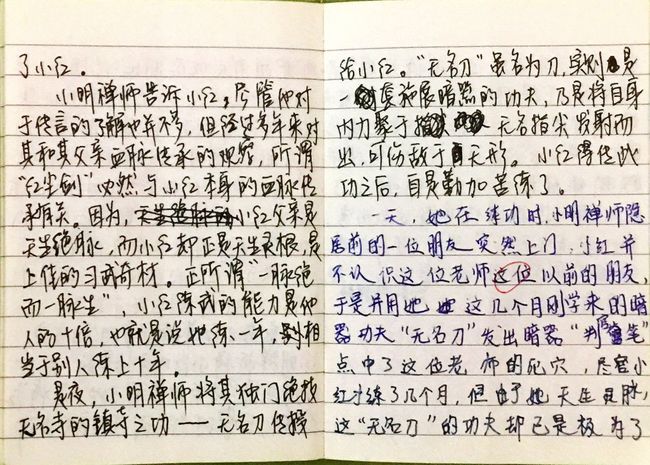 了小红。
小明禅师告诉小红，尽管他对
于传言的了解也并不多，但经过多年来对
其和其父亲血脉传承的观察，所谓
“红尘剑”必然与小红本身的血脉传
承有关。因为，小红父亲是
天生绝脉，而小红却正是天生灵根，是
上佳的习武奇材。正所谓“一脉绝
而一脉生”，小红练武的能力是他
人的十倍，也就是说她练一年，相
当于别人练上十年。
是夜，小明禅师将其独门绝技
无名寺的镇寺之功——无名刀传授
给小红。“无名刀”虽名为刀，实则是
一套施展暗器的功夫，乃是将自身
内力聚于无名指尖发射而
出，可伤敌于无形。小红得传此
功之后，自是勤加苦练了。
一天，她在练功时，小明禅师隐
居前的一位朋友突然上门，小红并
不认识这位老师这位以前的朋友，
于是并用她这几个月刚学来的暗
器功夫“无名刀”发出暗器“判官笔”
点中了这位老师的死穴，尽管小
红才练了几个月，但由于她天生灵脉，
这“无名刀”的功夫却已是极为了